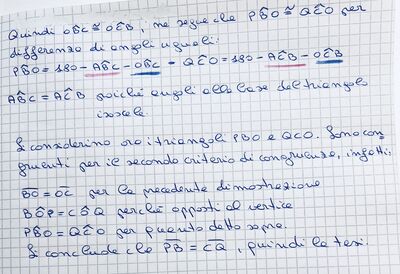 Quindi OB̂C ≅ OĈB, ne segue che PB̂O ≅ QĈO per
differenza di angoli uguali:
PB̂O = 180 - AB̂C - OB̂C = QĈO = 180 - AĈB - OĈB
AB̂C = AĈB poiché angoli alla base del triangolo
isoscele.
Si considerino ora i triangoli PBO e QCO. Sono con
gruenti per il secondo criterio di congruenza, infatti:
BO = OC per la precedente dimostrazione
BÔP = CÔQ perché opposti al vertice
PB̂O = QĈO per quanto detto sopra.
Si conclude che PB = CQ, quindi la tesi.